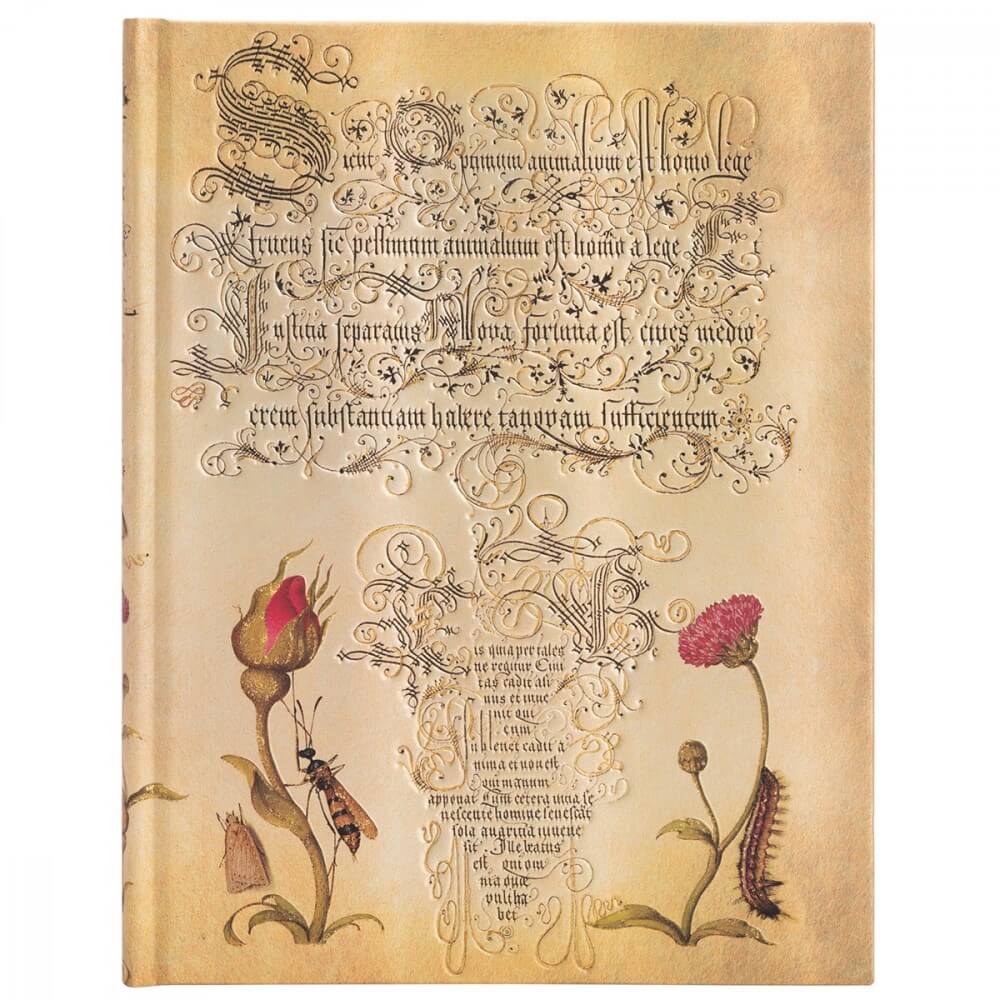 Sicut Optymum animalium est homo lege
fruens sic pessimum animalium est homo a lege Et
Iustitia separatus Nova fortuna est, cives medio
crem substantiam habere tanquam sufficientem
is quia per tales
ne regitur. Civi
tas cadit asi
nus et inve
nit qui
eum
Sublevet cadit a
nima et non est
qui manum
apponat Cum cetera vitia se
nescente homine senescāt
sola avaritia iuvene
scit. Ille beatus
est qui om
nia quæ
vult ha
bet.